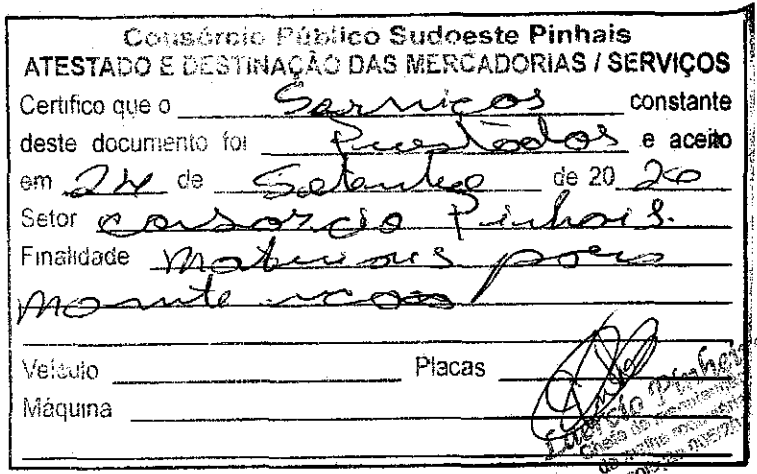 Consórcio Público Sudoeste Pinhais
ATESTADO E DESTINAÇÃO DAS MERCADORIAS / SERVIÇOS
Certifico que o Serviços constante
deste documento foi Prestados e aceito
em 24 de Setembro de 20 20
Setor consorcio Pinhais.
Finalidade Materiais para
Veículo Placas
Máquina
Laercio Pinheiro
Chefe de